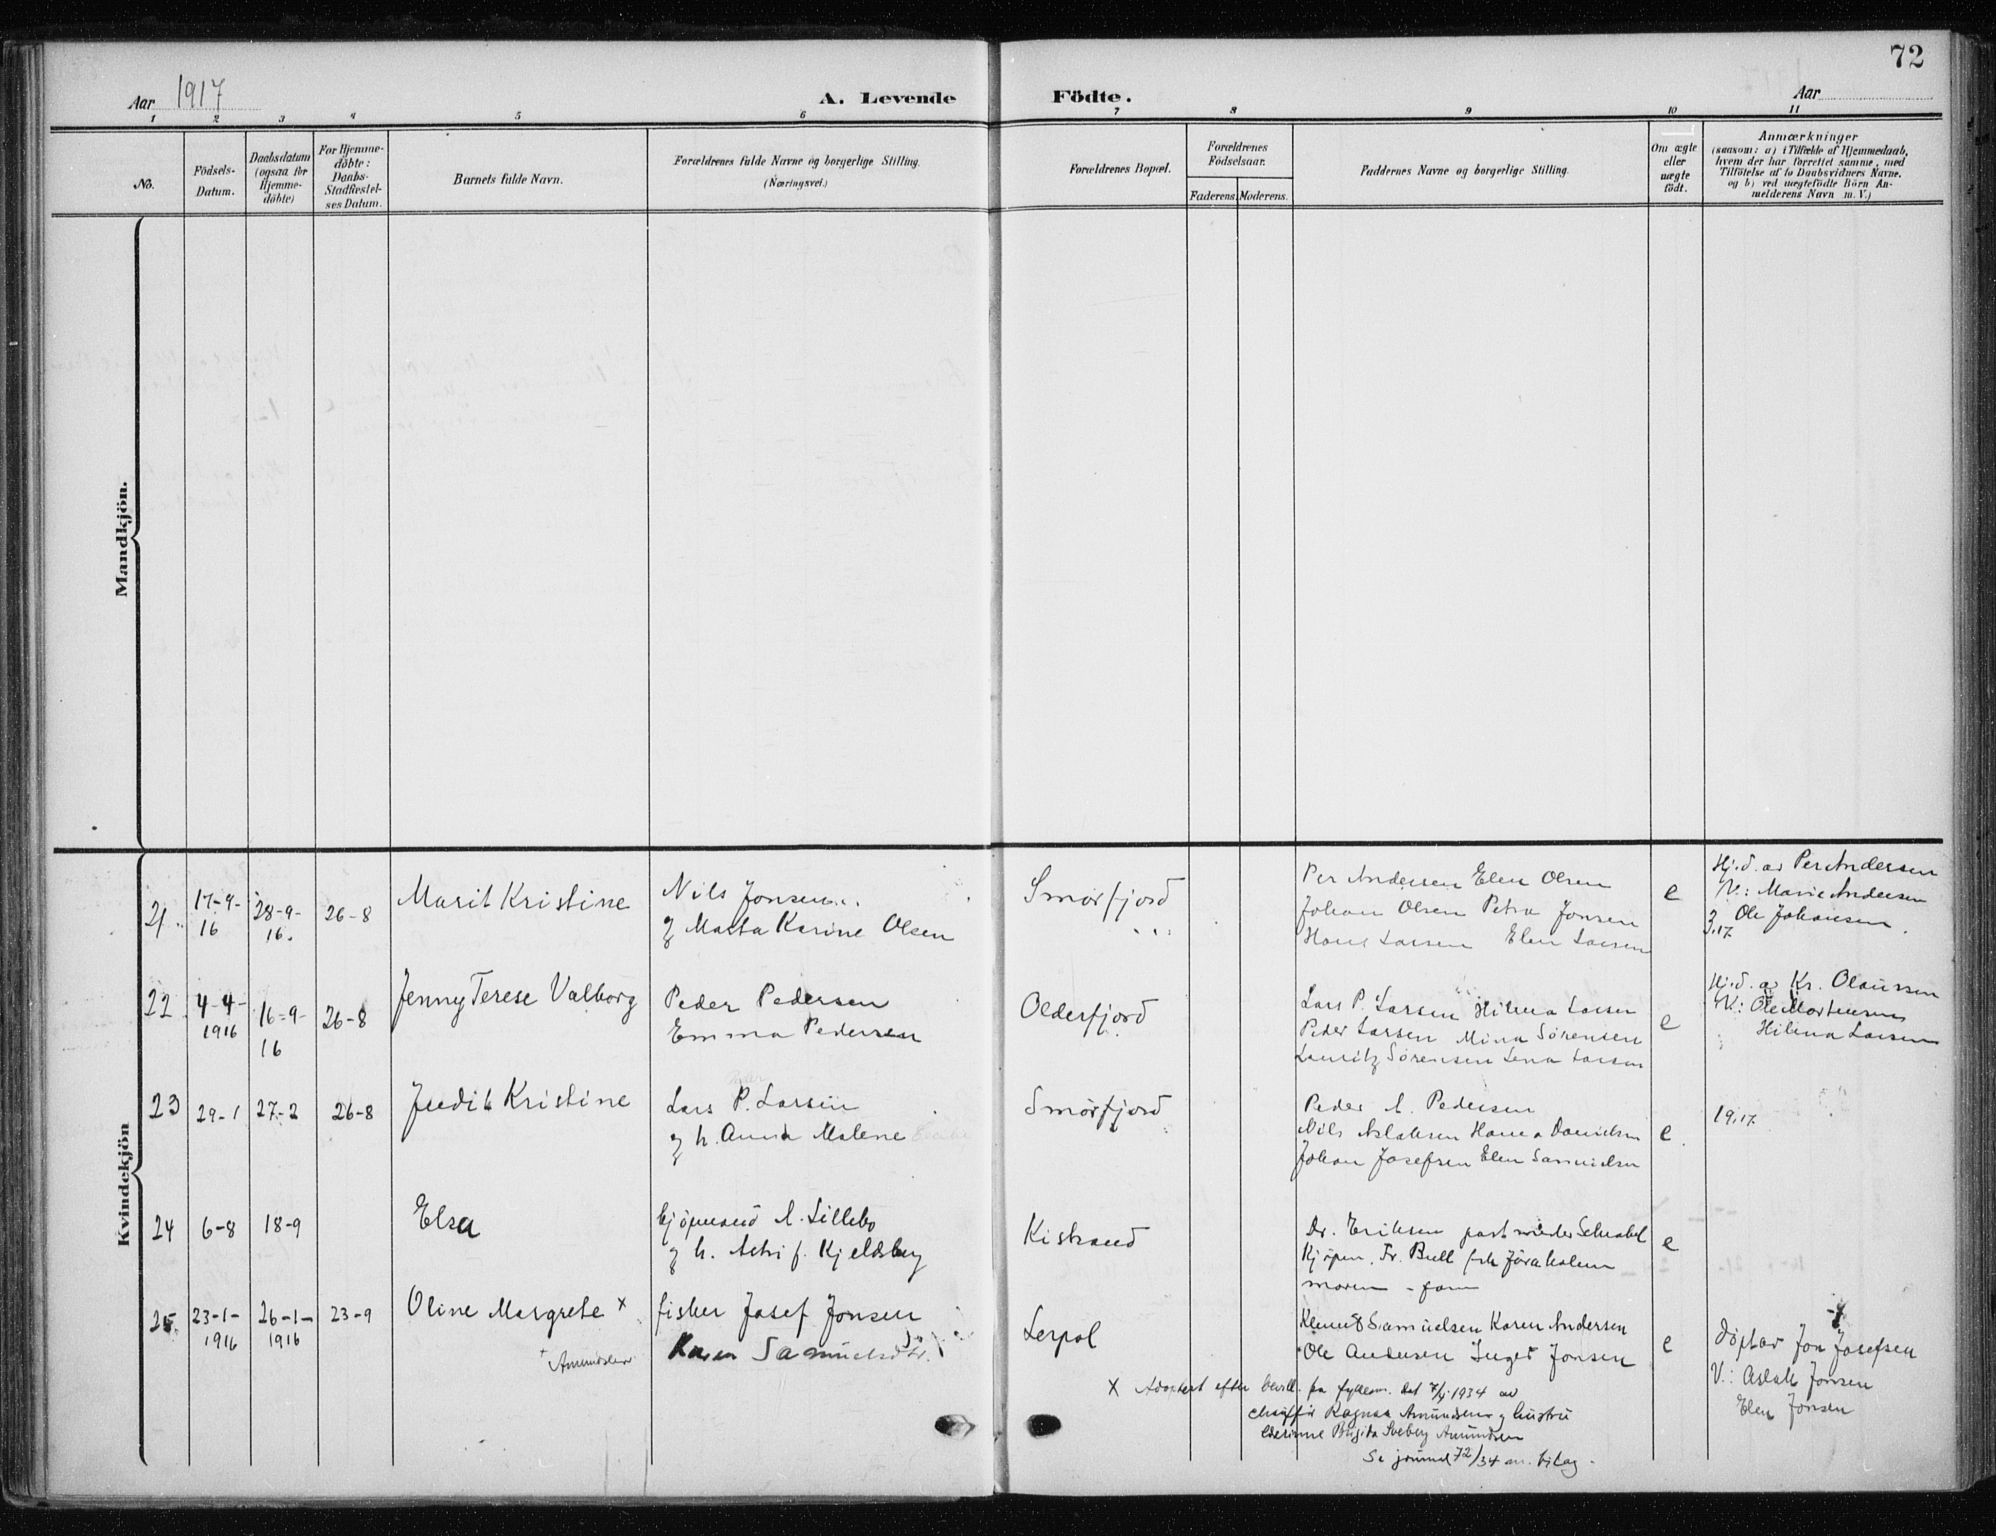 72
Aar 1917
A. Levende Födte.
Aar
1 2 3 4 5 6 7 8 9 10 11
No.
Födsels-
Datum.
Daabsdatum
(ogsaa for
Hjemme-
döbte)
For Hjemme-
döbte:
Daabs-
Stadfæstel-
ses Datum.
Barnets fulde Navn.
Forældrenes fulde Navne og borgerlige Stilling.
(Næringsvei.)
Forældrenes Bopæl.
Forældrenes
Födselsaar.
Faderens. Moderens.
Faddernes Navne og borgerlige Stilling.
Om ægte
eller
uægte
født.
Anmærkninger
(saasom: a) i Tilfælde af Hjemmedaab,
hvem der har forrettet samme, med
Tilföielse af to Daabsvidners Navne.
og b) ved uægtefödte Börn An-
melderens Navn m. V.)
Mandkjön.
Kvindekjön
21
17-9-
16
28-9-
16.
26-8
Marit Kristine
Nils Jonsen
og Marta Karine Olsen
Smørfjord
Per Andersen Elen Olsen
Johan Olsen Petra Jonsen
Hans Larsen Elen Larsen
e
Hj.d. av Per Andersen
V.: Marie Andersen
Ole Johansen.
3.17.
22
4-4-
1916
16-9-
16
26-8
Jenny Terese Valborg
Peder Pedersen
Emma Pedersen
Olderfjord
Lars P. Larsen Hilma Larsen
Peder Larsen Mina Sørensen
Lauritz Sørensen Lena Larsen
e
Hj.d. av Kr. Olaussen
V.: Ole Mortensen
Hilma Larsen
23
29-1
27-2
26-8
Judit Kristine
Lars P. Larsen
og h. Anna Malene
Smørfjord
Peder A. Pedersen
Nils Aslaksen Hanna Danielsen
Johan Josefsen Elen Samuelsen
e.
19.17.
24
6-8
18-9
Elsa
kjøpmand A. Lillebo
og h. Astri f. Kjeldsberg
Kistrand
Dr. Eriksen Schnabel
Kjøpm. Fr. Bull frk
moren - fam
e
25
23-1-
1916
26-1-
1916
23-9
Oline Margrete x
+ Amundsen
fisker Josef Jonsen
Karen Samuelsdtr.
Lerpol
Klemet Samuelsen Karen Andersen
Ole Andersen Inger Jonsen
e
døpt av Jon Josefsen
V.: Aslak Jonsen
Elen Jonsen
x Adoptert efter bevill. fra fylkesm. dat 7/4 1934 av
chauffør Ragnar Amundsen og hustru
Birgida Sveberg Amundsen
Se journal 72/34 m. bilag.